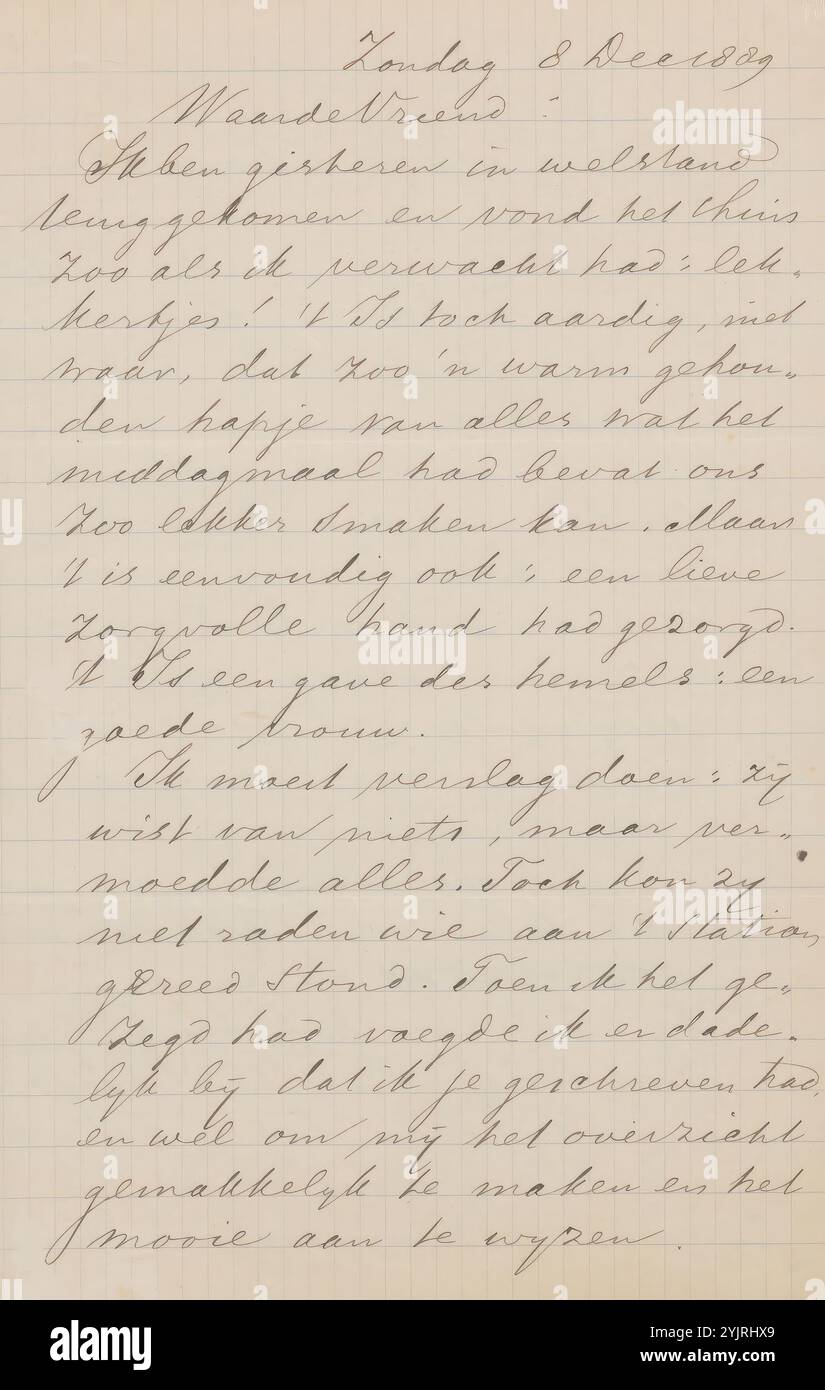 Zondag 8 Dec 1889
Waarde Vriend :
Ik ben gisteren in welstand
teruggekomen en vond het thuis
zoo als ik verwacht had : lek„
kertjes ! 't Is toch aardig, niet
waar, dat zoo 'n warm gehou„
den hapje van alles wat het
middagmaal had bevat ons
zoo lekker smaken kan. Maar
't is eenvoudig ook : een lieve
zorgvolle hand had gezorgd.
't Is een gave des hemels : een
goede vrouw.
Ik moest verslag doen : zij
wist van niets, maar ver„
moedde alles. Toch kon zy
niet raden wie aan 't station
gereed stond. Toen ik het ge„
zegd had voegde ik er dade„
lyk bij dat ik je geschreven had,
en wel om mij het overzicht
gemakkelyk te maken en het
mooie aan te wyzen.
alamy
Image ID: 2YJRHX9
www.alamy.com